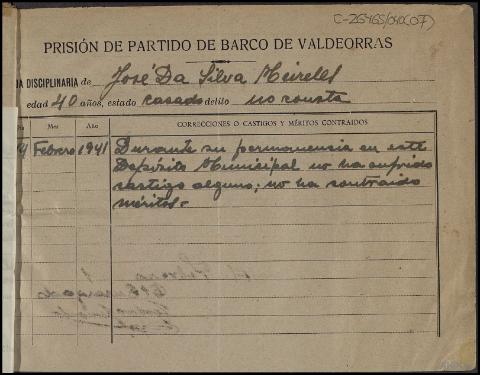 C-26465/040(07)
PRISIÓN DE PARTIDO DE BARCO DE VALDEORRAS
DA DISCIPLINARIA de José Da Silva Meirells
edad 40 años, estado casado delito no consta
Mes Año CORRECCIONES O CASTIGOS Y MÉRITOS CONTRAIDOS
4 Febrero 1941 Durante su permanencia en este
Depósito Municipal no ha sufrido
castigo alguno; no ha contraido
méritos.